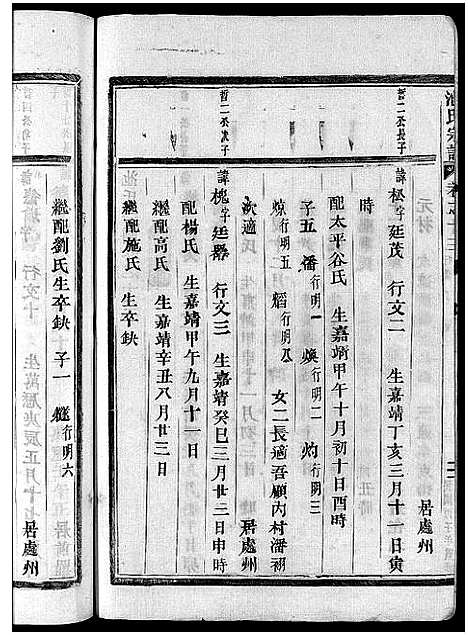 池氏宗譜 卷之十三
哲二公長子
諱松字廷茂 行文二 生嘉靖丁亥三月十一日寅
時 居處州
配太平谷氏 生嘉靖甲午十月初十日酉時
子五 行明一 煥行明二 灼行明三
行明五 熖行明八 女二長適吾顧內村潘 
次適氏 居處州
哲二公次子
諱槐字廷 行文三 生嘉靖癸巳三月廿三日申時
配楊氏 生嘉靖甲午九月十一日
繼配高氏 生嘉靖辛丑八月廿三日
繼配施氏 生卒缺
繼配劉氏生卒缺 子一 行明六 居處州